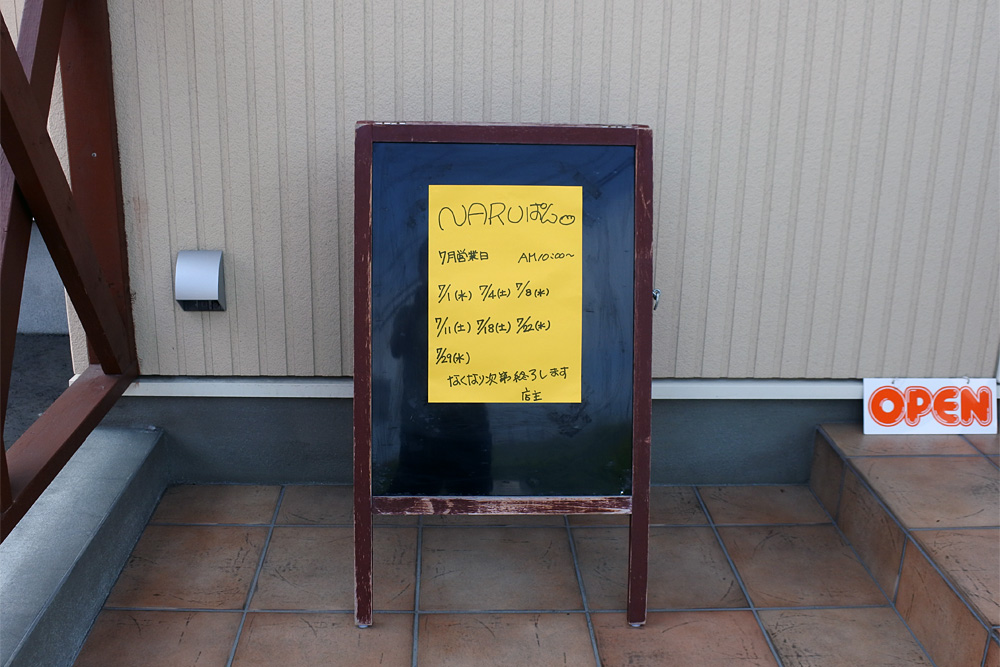 NARUぱん
7月営業日 AM10:00~
7/1(水) 7/4(土) 7/8(水)
7/11(土) 7/18(土) 7/22(水)
7/29(水)
なくなり次第終了します
店主
OPEN